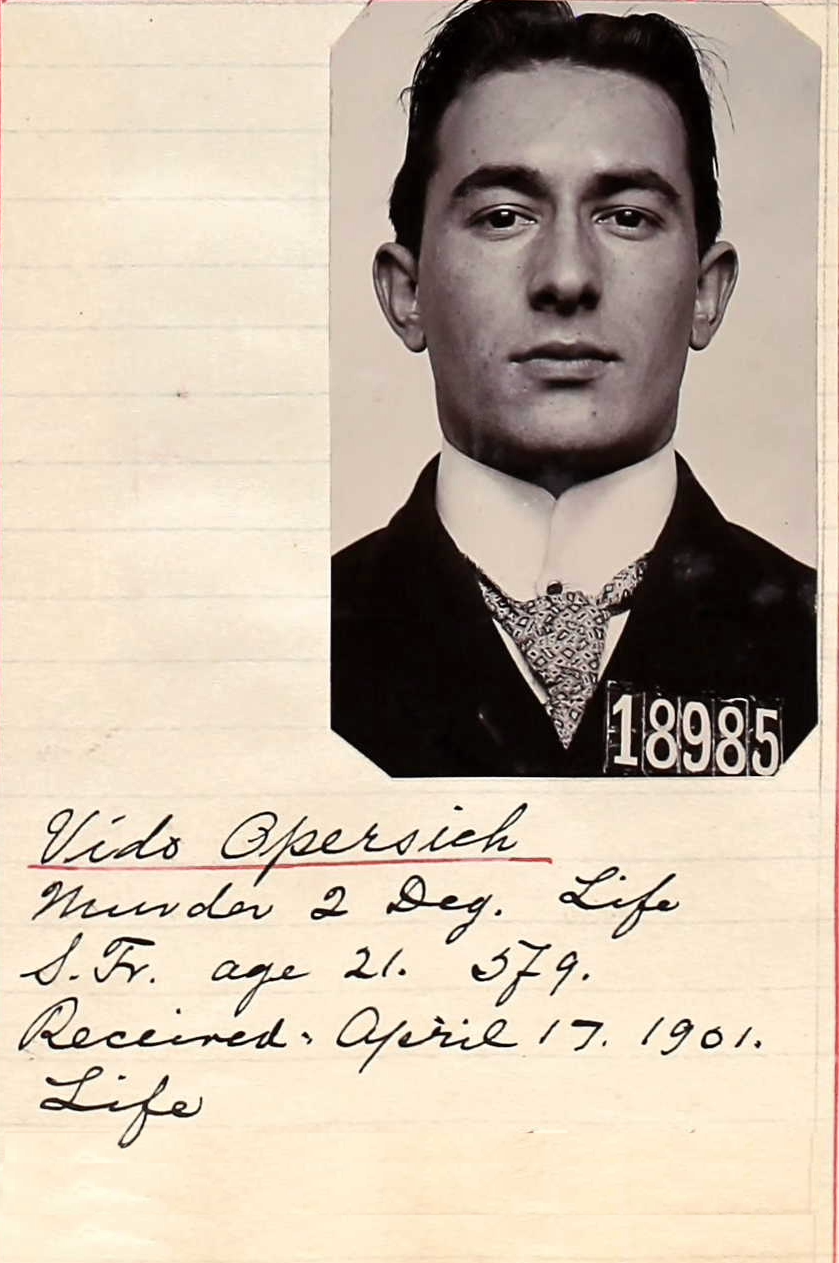 18985
Vido Opersich
Murder 2 Deg. Life
S. Fr. age 21. 5f9.
Received. April 17. 1901.
Life